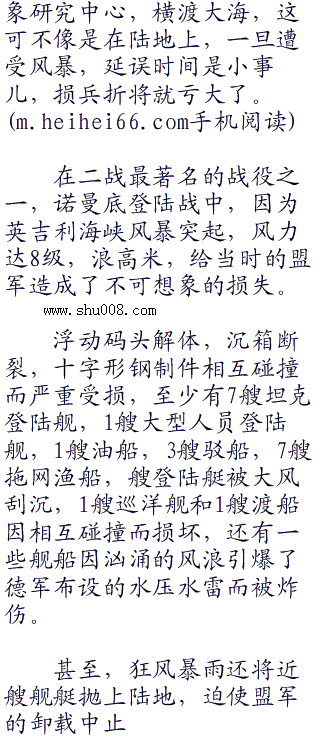 象研究中心，横渡大海，这
可不像是在陆地上，一旦遭
受风暴，延误时间是小事
儿，损兵折将就亏大了。
(m.heihei66.com手机阅读)
在二战最著名的战役之
一，诺曼底登陆战中，因为
英吉利海峡风暴突起，风力
达8级，浪高米，给当时的盟
军造成了不可想象的损失。
www.shu008.com
浮动码头解体，沉箱断
裂，十字形钢制件相互碰撞
而严重受损，至少有7艘坦克
登陆舰，1艘大型人员登陆
舰，1艘油船，3艘驳船，7艘
拖网渔船，艘登陆艇被大风
刮沉，1艘巡洋舰和1艘渡船
因相互碰撞而损坏，还有一
些舰船因汹涌的风浪引爆了
德军布设的水压水雷而被炸
伤。
甚至，狂风暴雨还将近
艘舰艇抛上陆地，迫使盟军
的卸载中止